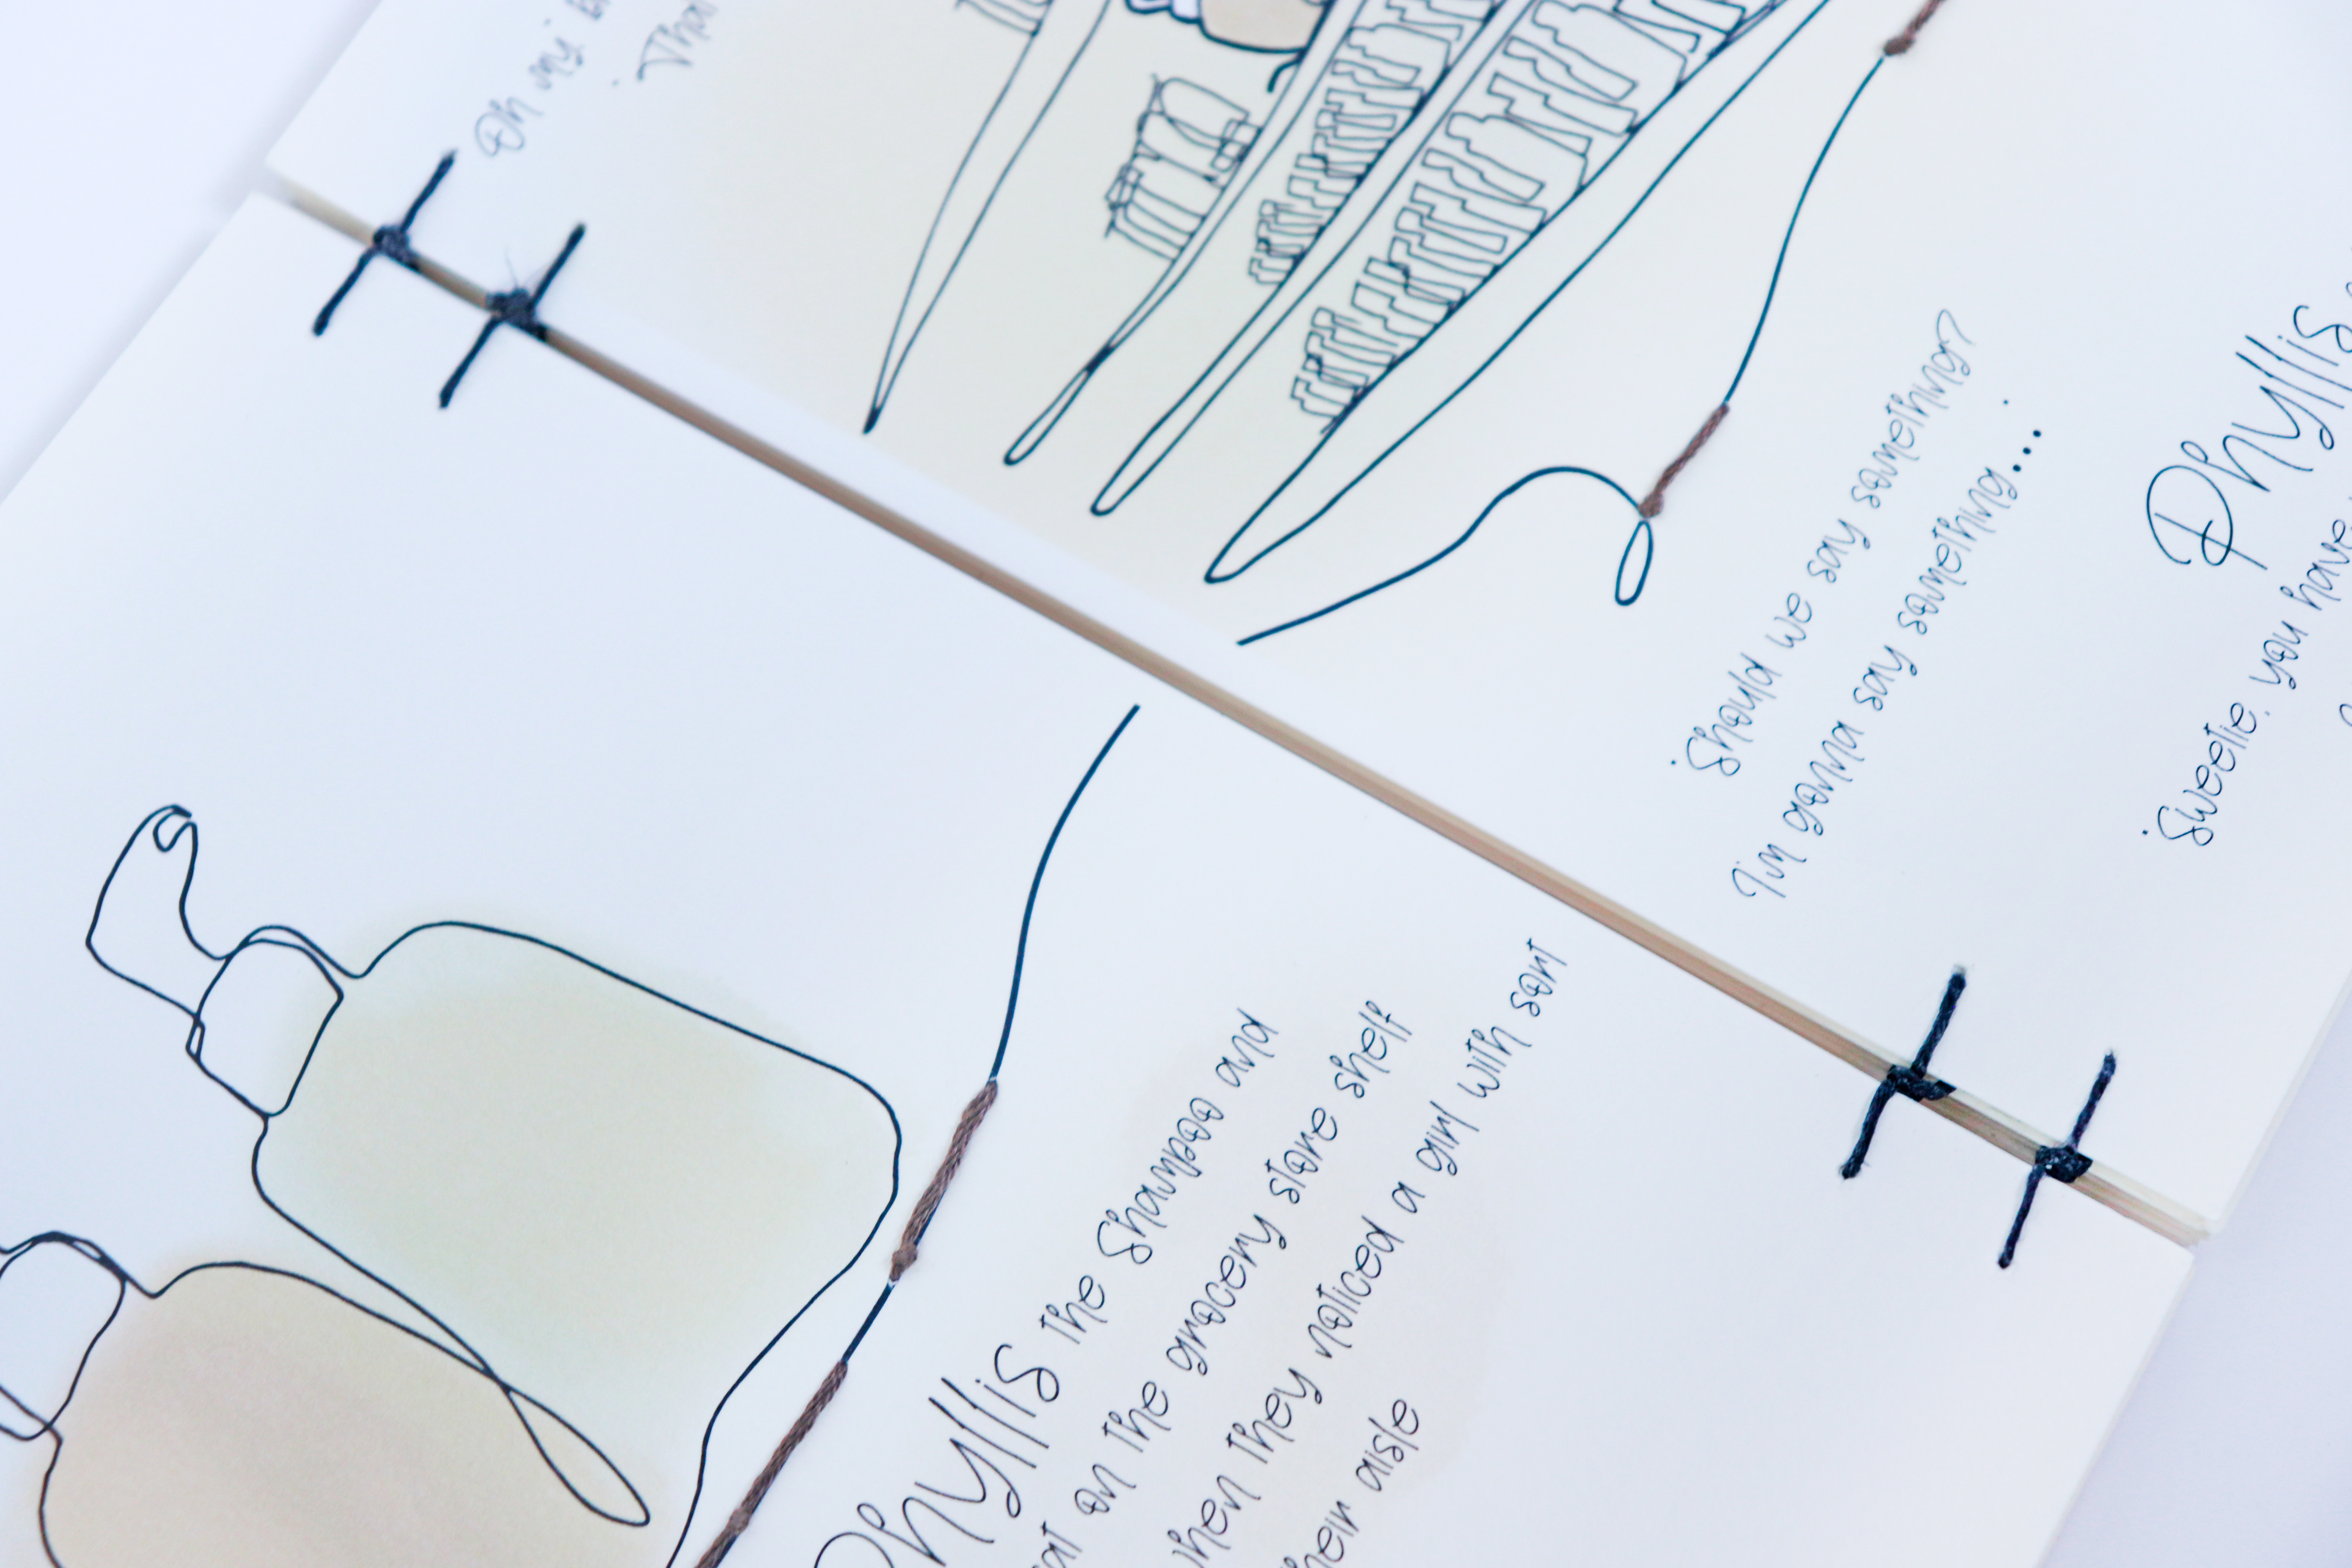 Oh my
'Should we say something?
I'm gonna say something...'
Phyllis
'Sweetie, you have
Phyllis the Shampoo and
sat on the grocery store shelf
when they noticed a girl with sort
their aisle